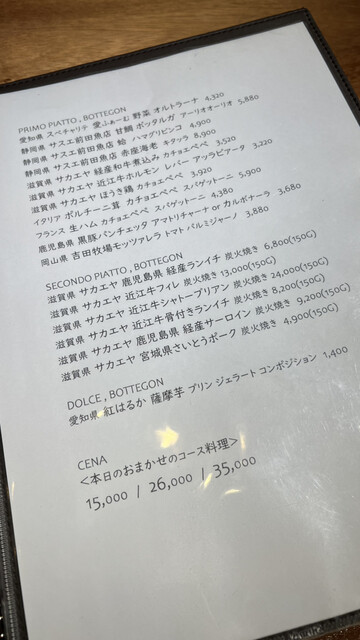 PRIMO PIATTO , BOTTEGON
愛知県 スペチャリテ 愛ふぁーむ 野菜 オルトラーナ 4,320
静岡県 サスエ前田魚店 甘鯛 ボッタルガ アーリオオーリオ 5,880
静岡県 サスエ前田魚店 蛤 ハマグリビンコ 4,900
静岡県 サスエ前田魚店 赤座海老 キタッラ 8,900
滋賀県 サカエヤ 経産和牛煮込み カチョエペペ 3,520
滋賀県 サカエヤ 近江牛ホルモン レバー アッラビアータ 3,220
滋賀県 サカエヤ ほうき鶏 カチョエペペ 3,920
イタリア ポルチーニ茸 カチョエペペ スパゲットーニ 5,900
フランス 生ハム カチョエペペ スパゲットーニ 4,380
鹿児島県 黒豚パンチェッタ アマトリチャーナ or カルボナーラ 3,680
岡山県 吉田牧場モッツァレラ トマト パルミジャーノ 3,880
SECONDO PIATTO , BOTTEGON
滋賀県 サカエヤ 鹿児島県 経産ランイチ 炭火焼き 6,800(150G)
滋賀県 サカエヤ 近江牛フィレ 炭火焼き 13,000(150G)
滋賀県 サカエヤ 近江牛シャトーブリアン 炭火焼き 24,000(150G)
滋賀県 サカエヤ 近江牛骨付きランイチ 炭火焼き 8,200(150G)
滋賀県 サカエヤ 鹿児島県 経産サーロイン 炭火焼き 9,200(150G)
滋賀県 サカエヤ 宮城県さいとうポーク 炭火焼き 4,900(150G)
DOLCE , BOTTEGON
愛知県 紅はるか 薩摩芋 プリン ジェラート コンポジション 1,400
CENA
＜本日のおまかせのコース料理＞
15,000 / 26,000 / 35,000